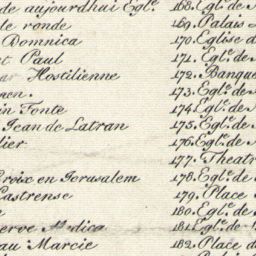 de aujourdhui Egl.e
de ronde
Domnica
et Paul
Hostilienne
in Fonte
Jean de Latran
lier
Croix en Jerusalem
Castrense
au Marcie
168. Egl.e de
169. Palais
170. Eglise d
171. Egl.e de
172. Banque
173. Egl.e de
174. Egl.e de
175. Egl.e de
176. Egl.e de
177. Theatr
178. Egl.e de
179. Place
180. Egl.e de
181. Egl.e de
182. Place d